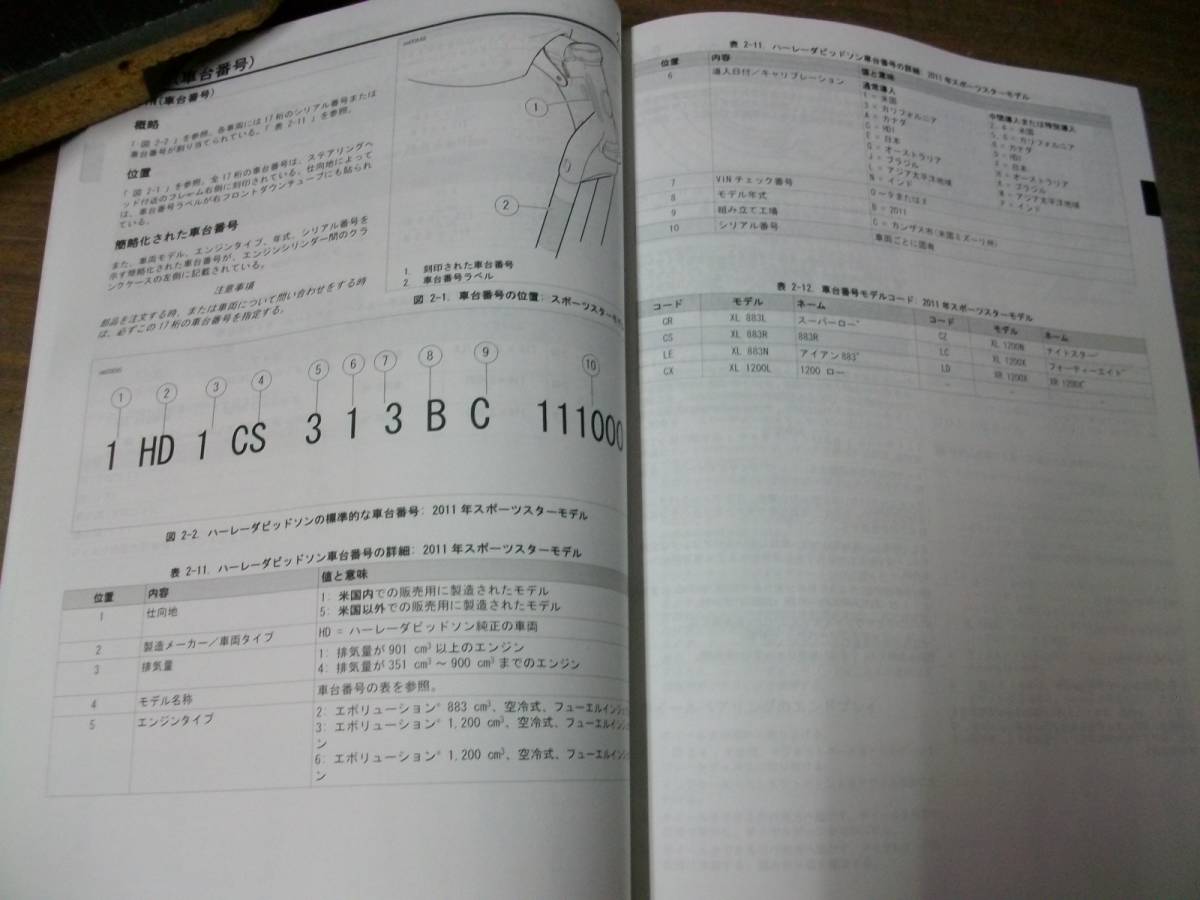 (車台番号)
(車台番号)
概略
「図 2-2」を参照。各車両には17桁のシリアル番号または
車台番号が割り当てられている。「表 2-11」を参照。
位置
「図 2-1」を参照。全17桁の車台番号は、ステアリングヘ
ッド付近のフレーム右側に刻印されている。仕向地によって
は、車台番号ラベルが右フロントダウンチューブにも貼られ
ている。
簡略化された車台番号
また、車両モデル、エンジンタイプ、年式、シリアル番号を
示す簡略化された車台番号が、エンジンシリンダー間のクラ
ンクケースの左側に記載されている。
注意事項
部品を注文する時、または車両について問い合わせをする時
は、必ずこの17桁の車台番号を指定する。
1
2
1. 刻印された車台番号
2. 車台番号ラベル
図 2-1. 車台番号の位置: スポーツスターモデ
1 2 3 4 5 6 7 8 9 10
1 HD 1 CS 3 1 3 B C 111000
図 2-2. ハーレーダビッドソンの標準的な車台番号: 2011 年スポーツスターモデル
表 2-11. ハーレーダビッドソン車台番号の詳細: 2011 年スポーツスターモデル
位置 内容 値と意味
1 仕向地 1: 米国内での販売用に製造されたモデル
5: 米国以外での販売用に製造されたモデル
2 製造メーカー/車両タイプ HD = ハーレーダビッドソン純正の車両
3 排気量 1: 排気量が 901 cm³ 以上のエンジン
4: 排気量が 351 cm³ ~ 900 cm³ までのエンジン
4 モデル名称 車台番号の表を参照。
5 エンジンタイプ 2: エボリューション® 883 cm³、空冷式、フューエルインジェ
3: エボリューション® 1,200 cm³、空冷式、フューエルインジ
ン
6: エボリューション® 1,200 cm³、空冷式、フューエルインジ
ン
表 2-11. ハーレーダビッドソン車台番号の詳細: 2011 年スポーツスターモデル
位置 内容 値と意味
6 導入日付/キャリブレーション 通常導入 中間導入または特別導入
1 = 米国 2、4 = 米国
3 = カリフォルニア 5、6 = カリフォルニア
A = カナダ B = カナダ
C = HDI D = HDI
E = 日本 F = 日本
G = オーストラリア H = オーストラリア
J = ブラジル K = ブラジル
L = アジア太平洋地域 M = アジア太平洋地域
N = インド P = インド
7 VIN チェック番号 0 ~ 9 または X
8 モデル年式 B = 2011
9 組み立て工場 C = カンザス市(米国ミズーリ州)
10 シリアル番号 車両ごとに固有
表 2-12. 車台番号モデルコード: 2011 年スポーツスターモデル
コード モデル ネーム コード モデル ネーム
CR XL 883L スーパーロー® CZ XL 1200N ナイトスター®
CS XL 883R 883R LC XL 1200X フォーティーエイト®
LE XL 883N アイアン 883® LD XR 1200X XR 1200X®
CX XL 1200L 1200 ロー - - -